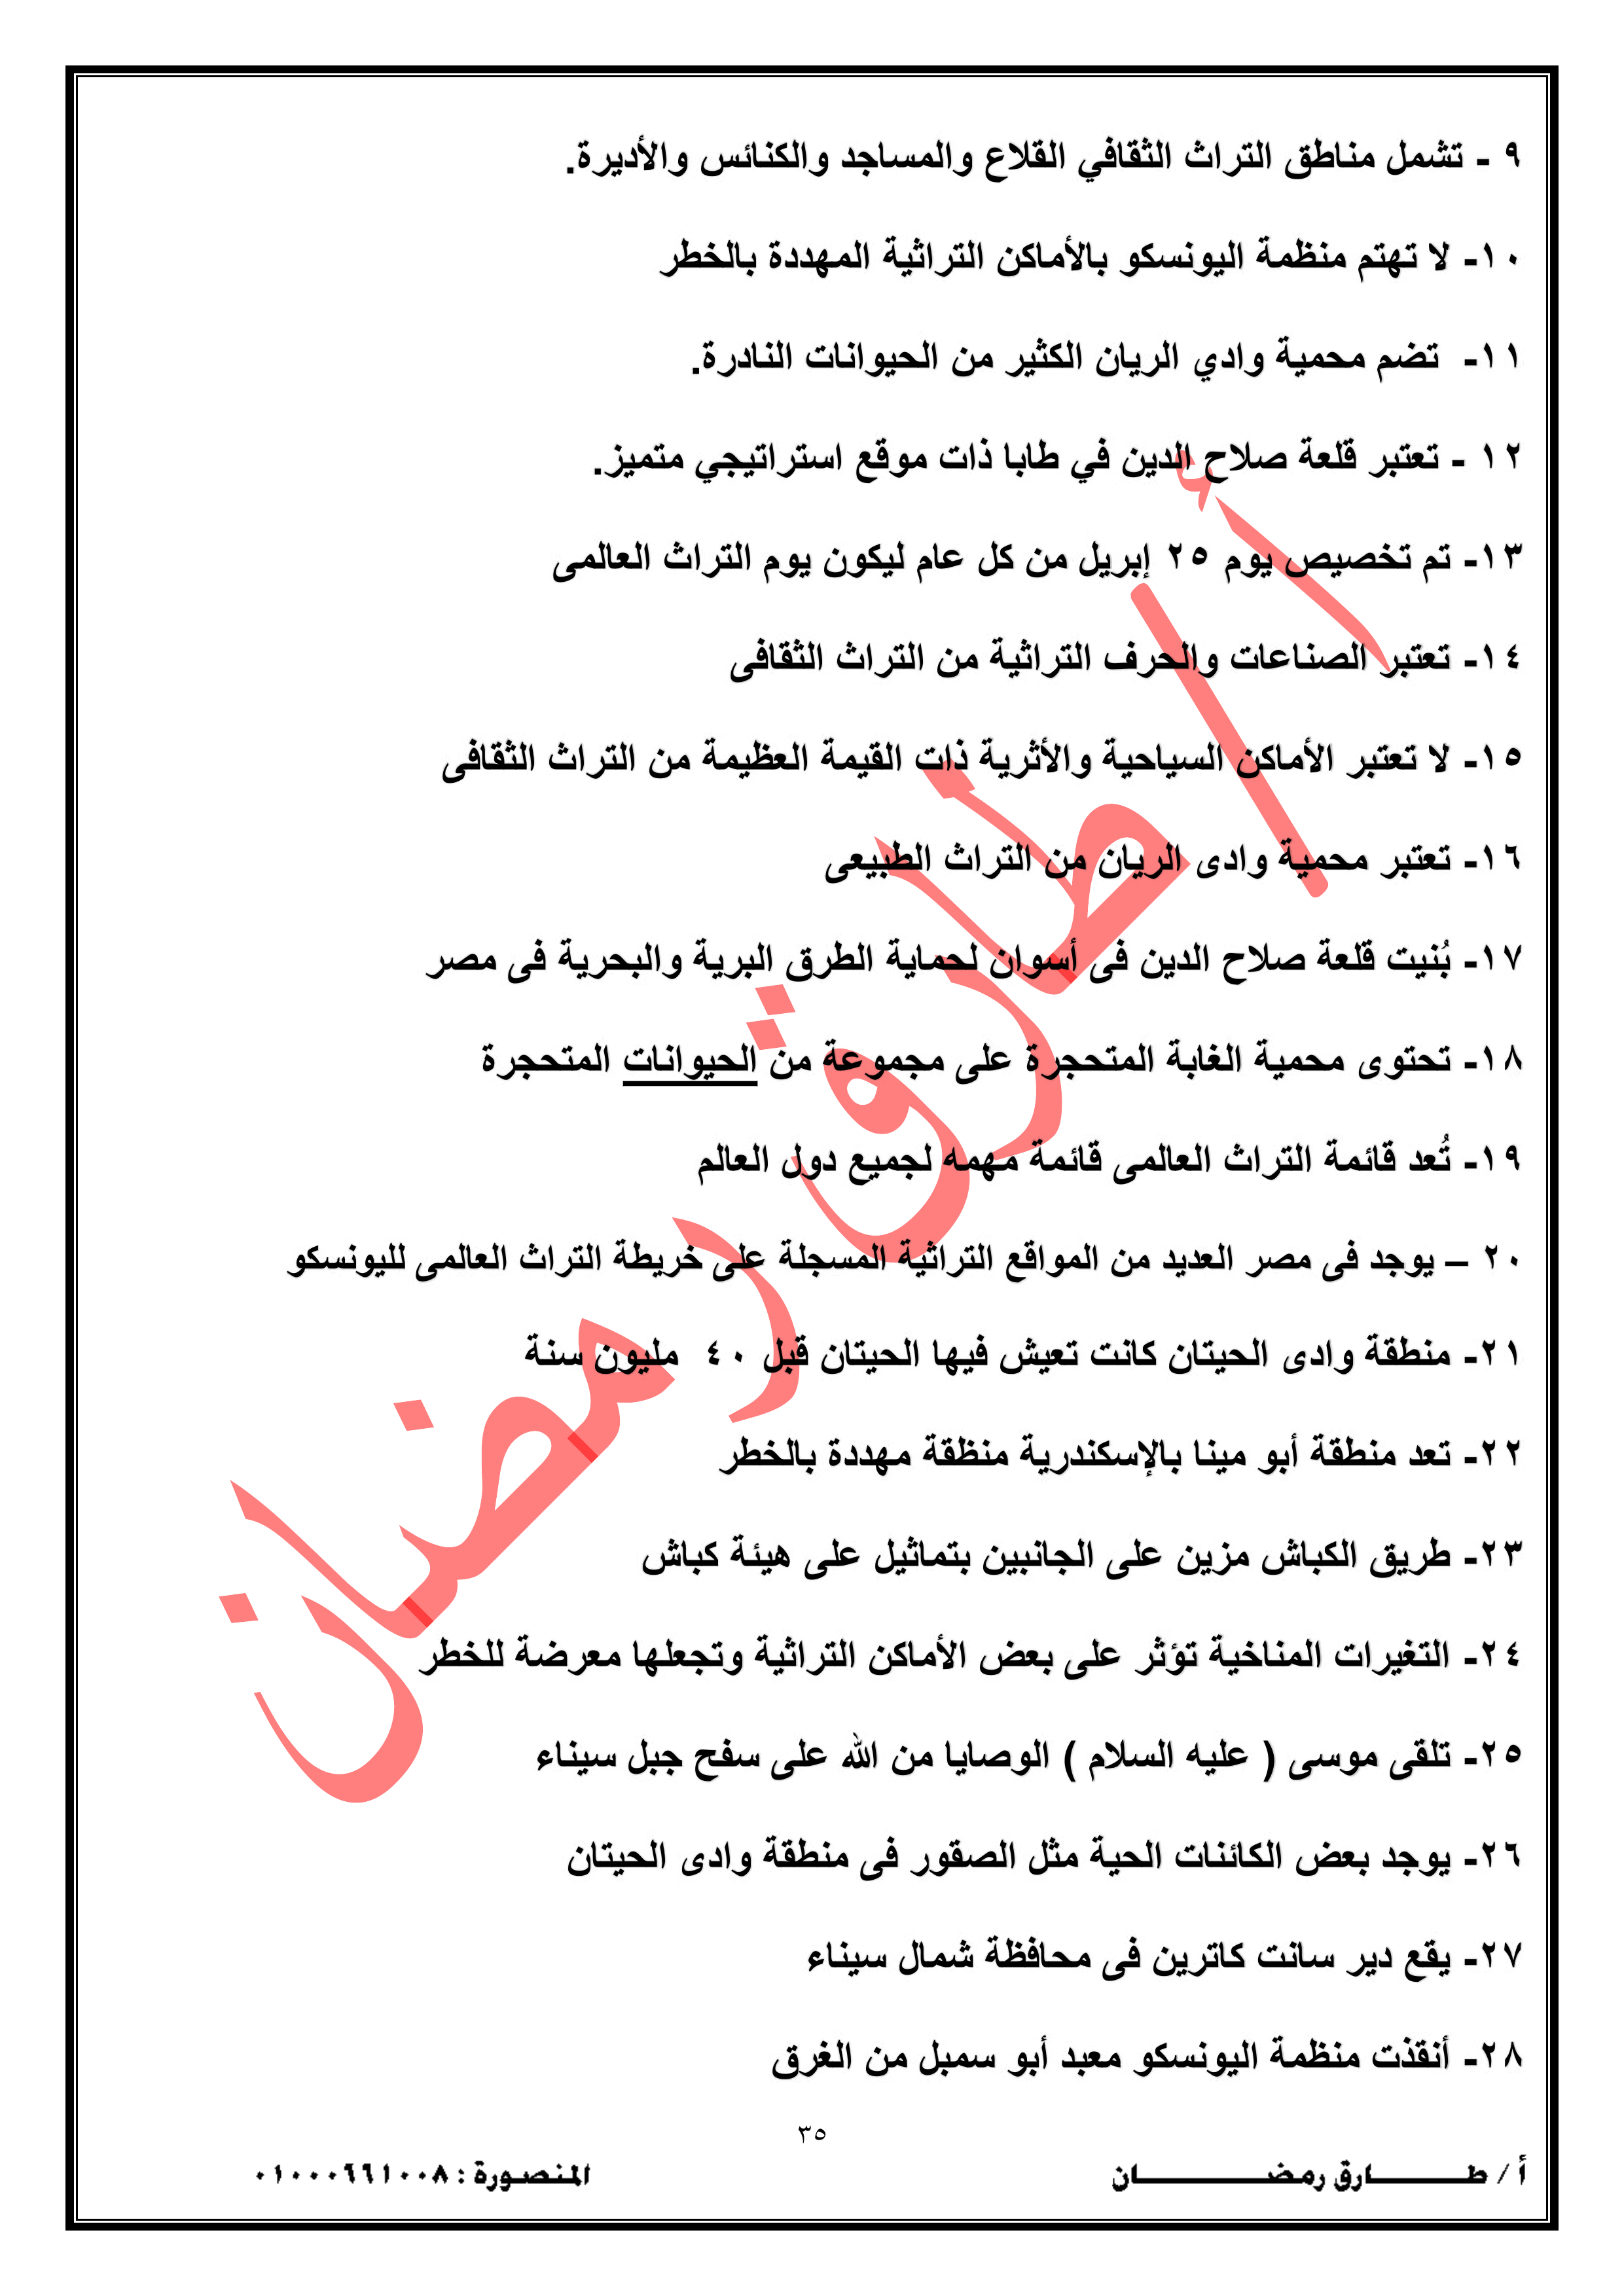 ٩ - تشمل مناطق التراث الثقافي القلاع والمساجد والكنائس والأديرة.
١٠- لا تهتم منظمة اليونسكو بالأماكن التراثية المهددة بالخطر
١١- تضم محمية وادي الريان الكثير من الحيوانات النادرة.
١٢ - تعتبر قلعة صلاح الدين في طابا ذات موقع استراتيجي متميز.
١٣- تم تخصيص يوم ٢٥ إبريل من كل عام ليكون يوم التراث العالمى
١٤- تعتبر الصناعات والحرف التراثية من التراث الثقافى
١٥- لا تعتبر الأماكن السياحية والأثرية ذات القيمة العظيمة من التراث الثقافى
١٦- تعتبر محمية وادى الريان من التراث الطبيعى
١٧- بُنيت قلعة صلاح الدين فى أسوان لحماية الطرق البرية والبحرية فى مصر
١٨- تحتوى محمية الغابة المتحجرة على مجموعة من الحيوانات المتحجرة
١٩- تُعد قائمة التراث العالمى قائمة مهمه لجميع دول العالم
٢٠ – يوجد فى مصر العديد من المواقع التراثية المسجلة على خريطة التراث العالمى لليونسكو
٢١- منطقة وادى الحيتان كانت تعيش فيها الحيتان قبل ٤٠ مليون سنة
٢٢- تعد منطقة أبو مينا بالإسكندرية منظقة مهددة بالخطر
٢٣- طريق الكباش مزين على الجانبين بتماثيل على هيئة كباش
٢٤- التغيرات المناخية تؤثر على بعض الأماكن التراثية وتجعلها معرضة للخطر
٢٥- تلقى موسى ( عليه السلام ) الوصايا من الله على سفح جبل سيناء
٢٦- يوجد بعض الكائنات الحية مثل الصقور فى منطقة وادى الحيتان
٢٧- يقع دير سانت كاترين فى محافظة شمال سيناء
٢٨- أنقذت منظمة اليونسكو معبد أبو سمبل من الغرق
أ / طارق رمضان
٣٥
أ / طـــــــــــارق رمـضـــــــــــــــان
المنصورة : ٠١٠٠٠٦٦١٠٠٨